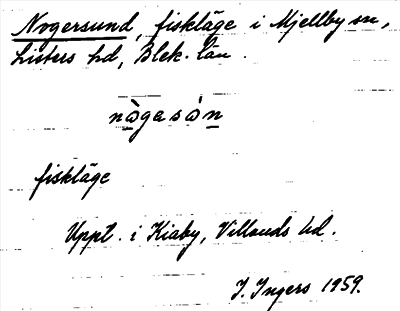 Nogersund, fiskläge i Mjellby sn,
Listers hd, Blek. län.
nò̲gasòn̲
fiskläge
Uppt. i Kiaby, Villands hd.
J. Ingers 1959.